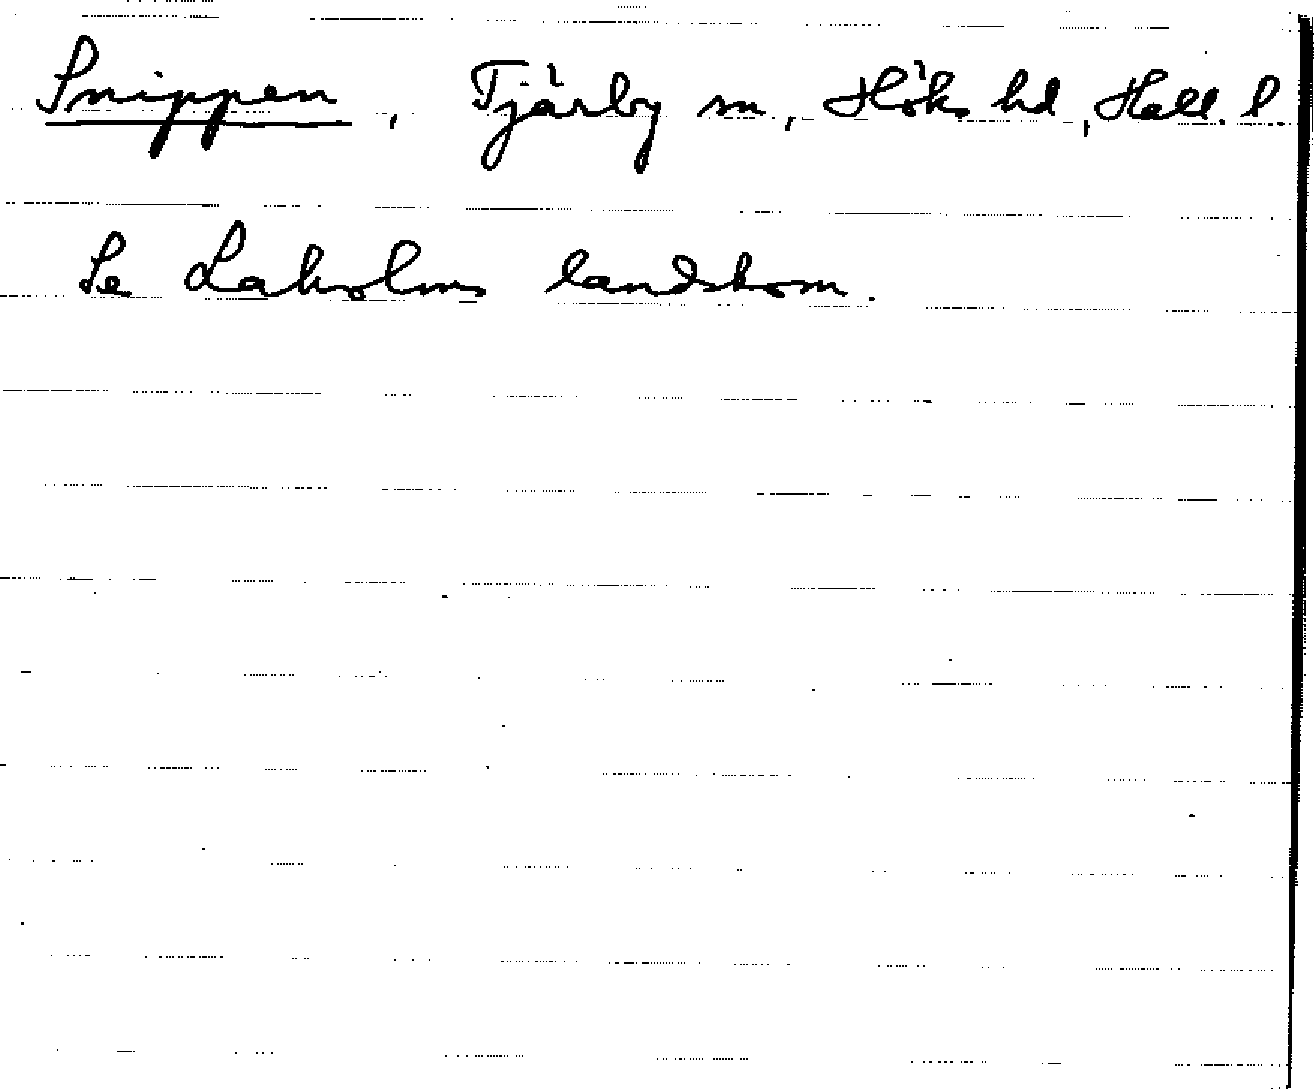 Snippen, Tjärby sn, Höks hd, Hall. l.
Se Laholms landskom.